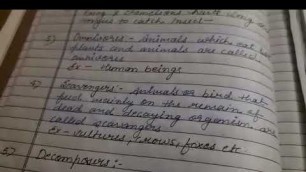 tongue to catch insect -
3) Omnivores - Animals which eat
plants and animals are called
omnivores
Ex - Human beings
4) Scavengers - Animals or bird that
feed mainly on the remain of
dead and decaying organism are
called scavengers
Ex - vultures, crows, foxes etc
5) Decomposers :-